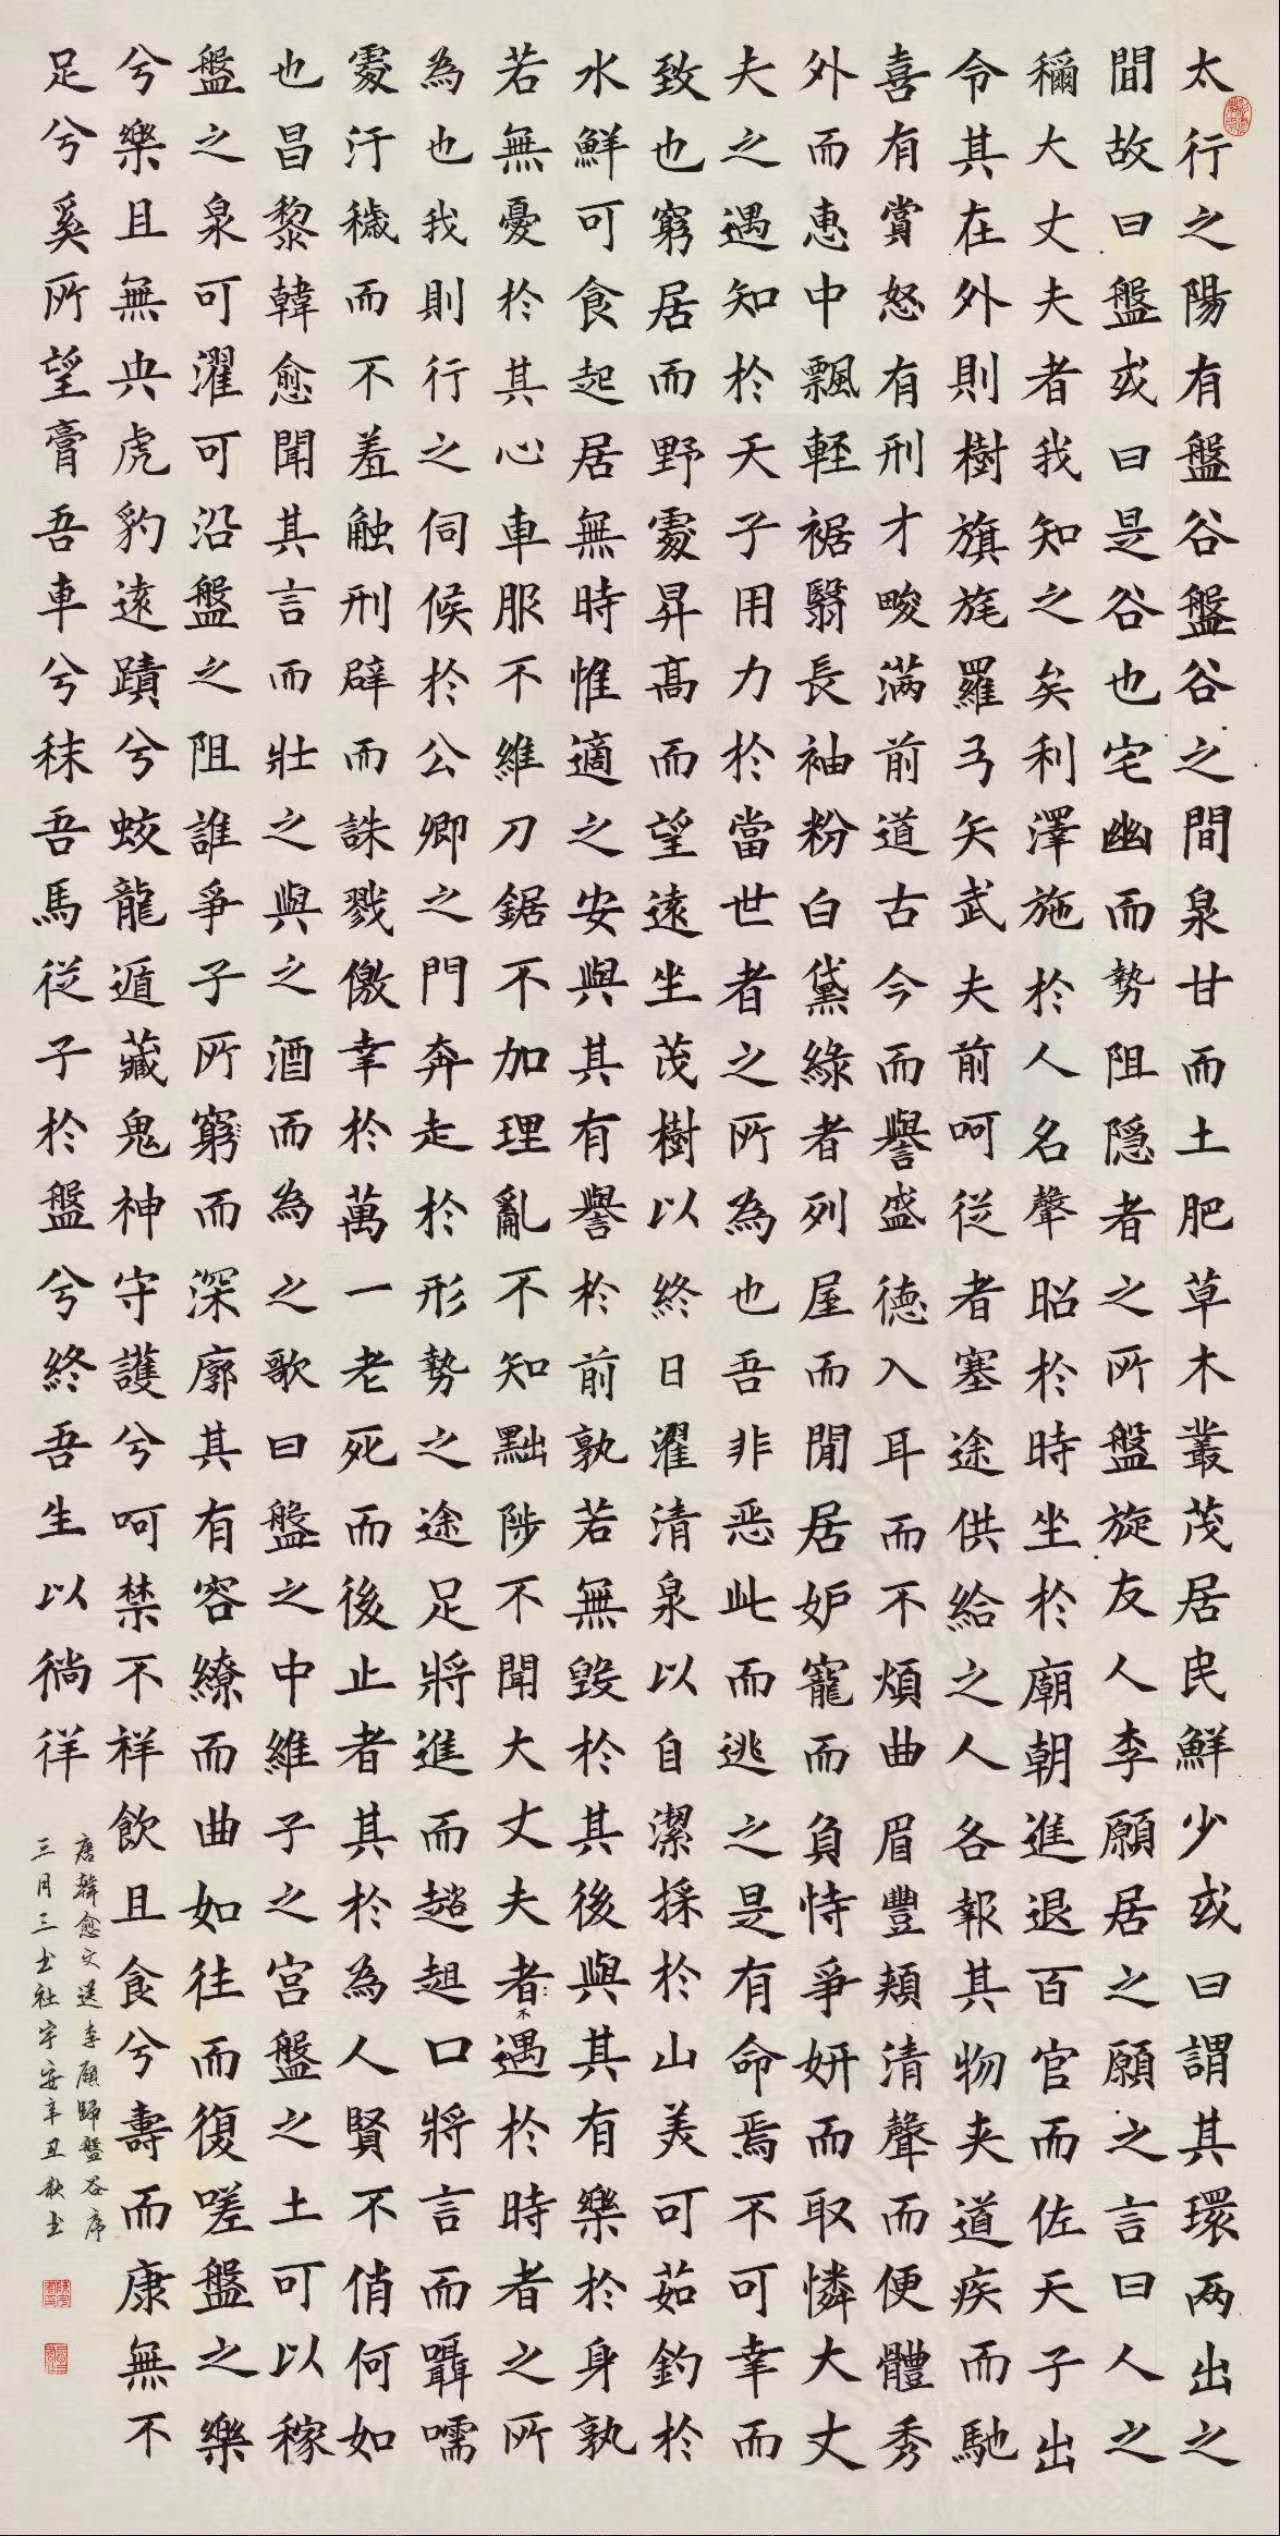 太行之陽有盤谷盤谷之間泉甘而土肥草木叢茂居民鮮少或曰謂其環两出之
間故曰盤或曰是谷也宅幽而勢阻隐者之所盤旋友人李願居之願之言曰人之
稱大丈夫者我知之矣利澤施於人名聲昭於時坐於廟朝進退百官而佐天子出
令其在外則樹旗旄羅弓矢武夫前呵従者塞途供給之人各報其物夹道疾而馳
喜有賞怒有刑才畯满前道古今而譽盛德入耳而不煩曲眉豐頬清聲而便體秀
外而惠中飄軽裾翳長袖粉白黛綠者列屋而閒居妒寵而負恃爭妍而取憐大丈
夫之遇知於天子用力於當世者之所為也吾非恶此而逃之是有命焉不可幸而
致也窮居而野處昇高而望遠坐茂樹以終日濯清泉以自潔採於山美可茹釣於
水鮮可食起居無時惟適之安與其有譽於前孰若無毀於其後與其有樂於身孰
若無憂於其心車服不維刀鋸不加理亂不知黜陟不聞大丈夫者不遇於時者之所
為也我則行之伺候於公卿之門奔走於形勢之途足將進而趑趄口將言而囁嚅
處汙穢而不羞触刑辟而誅戮儌幸於萬一老死而後止者其於為人賢不俏何如
也昌黎韓愈聞其言而壯之與之酒而為之歌曰盤之中維子之宮盤之土可以稼
盤之泉可濯可沿盤之阻誰爭子所窮而深廓其有容繚而曲如往而復嗟盤之樂
兮樂且無央虎豹遠蹟兮蛟龍遁藏鬼神守護兮呵禁不祥飲且食兮壽而康無不
足兮奚所望膏吾車兮秣吾馬従子於盤兮終吾生以徜徉
唐韓愈文送李愿歸盤谷序
三月三书社宇安辛丑秋书